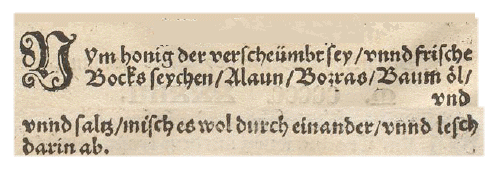 Nym honig der verscheümbt sey/ vnnd frische
Bocks seychen/ Alaun/ Borras/ Baum öl/
vnd
vnnd saltz/ misch es wol durch einander/ vnnd lesch
darin ab.